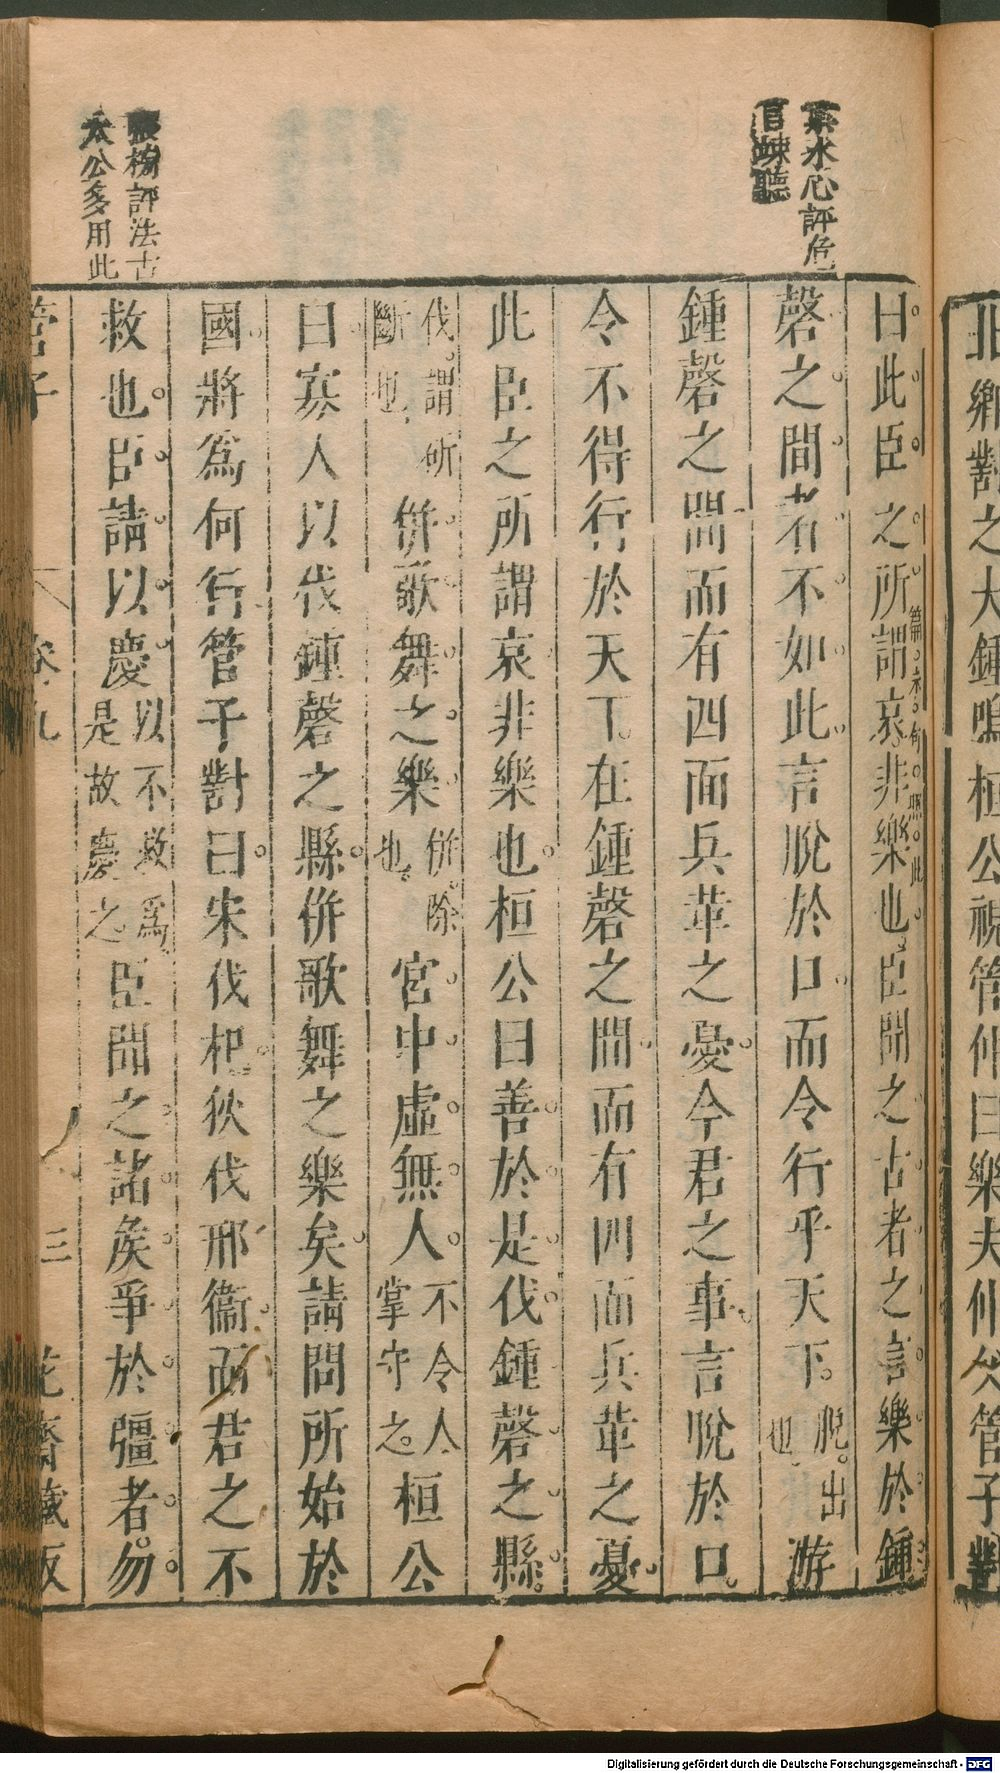 北鄉對之大鍾鳴桓公視管仲曰樂夫仲父管子對
曰此臣之所謂哀非樂也臣聞之古者之言樂於鍾
磬之間者不如此言脫於口而令行乎天下脫出也游
鍾磬之間而有四面兵革之憂今君之事言脫於口
令不得行於天下在鍾磬之間而有四面兵革之憂
此臣之所謂哀非樂也桓公曰善於是伐鍾磬之縣
伐謂斫斷也併歌舞之樂併除也宮中虛無人不令人掌守之桓公
曰寡人以伐鍾磬之縣併歌舞之樂矣請問所始於
國將爲何行管子對曰宋伐杞狄伐邢衞而君之不
救也臣請以慶以不救爲是故慶之臣聞之諸矦爭於彊者勿
管子
卷九
三
花齋藏板
水心評危
言竦聽
張榜評法古
太公多用此
Digitalisierung gefördert durch die Deutsche Forschungsgemeinschaft - DFG